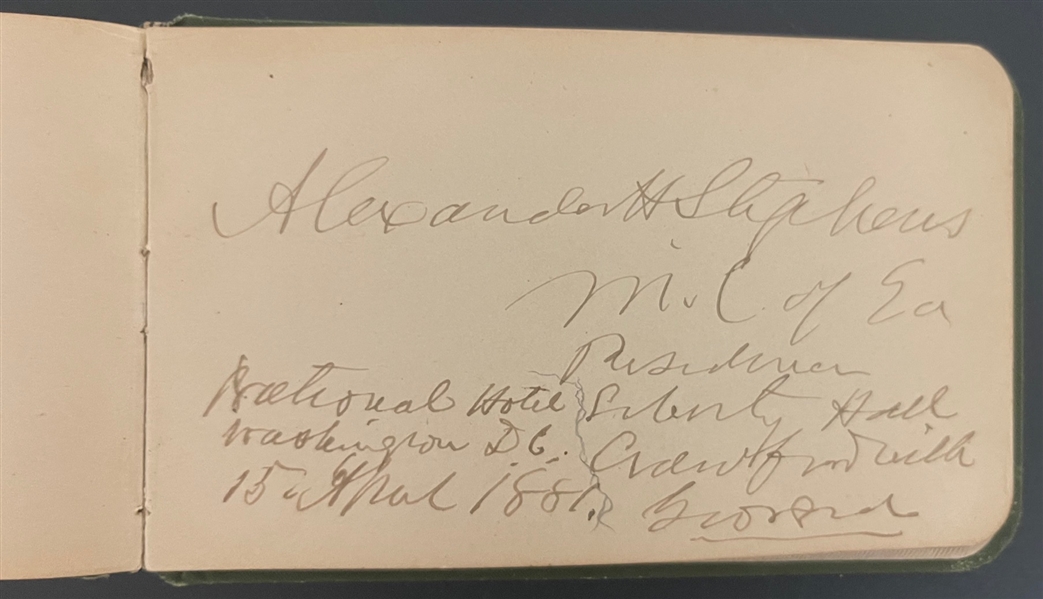 Alexander H Stephens
M. C. of Ga
Residence
National Hotel
Washington D.C.
15 April 1881.
Liberty Hall
Crawfordville
Georgia